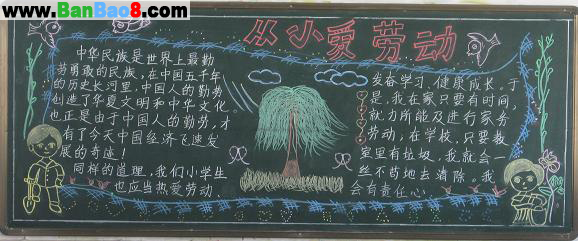 www.BanBao8.com
从小爱劳动
中华民族是世界上最勤
劳勇敢的民族，在中国五千年
的历史长河里，中国人的勤劳
创造了华夏文明和中华文化
也正是由于中国人的勤劳，才
有了今天中国经济飞速发
展的奇迹！
同样的道理，我们小学生
也应当热爱劳动，
发奋学习、健康成长。于
是，我在家只要有时间，
就力所能及进行家务
劳动；在学校，只要教
室里有垃圾，我就会一
丝不苟地去清除。我
会有责任心